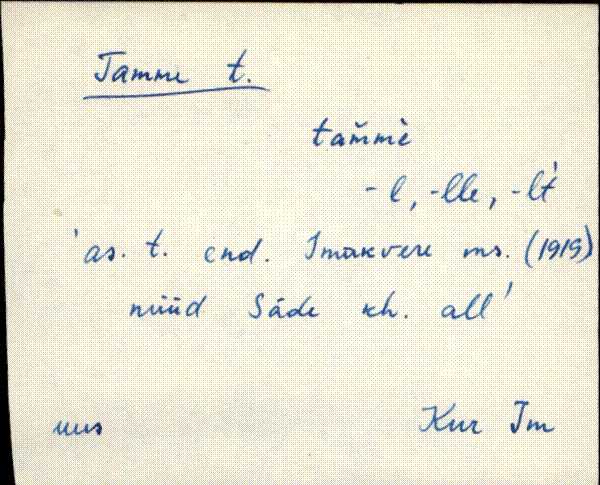 Tamme t.
tam̆mè
-l, -lle, -lt
'as. t. end. Imukvere ms. (1919)
nüüd Säde kh. all'
uus Kur Im